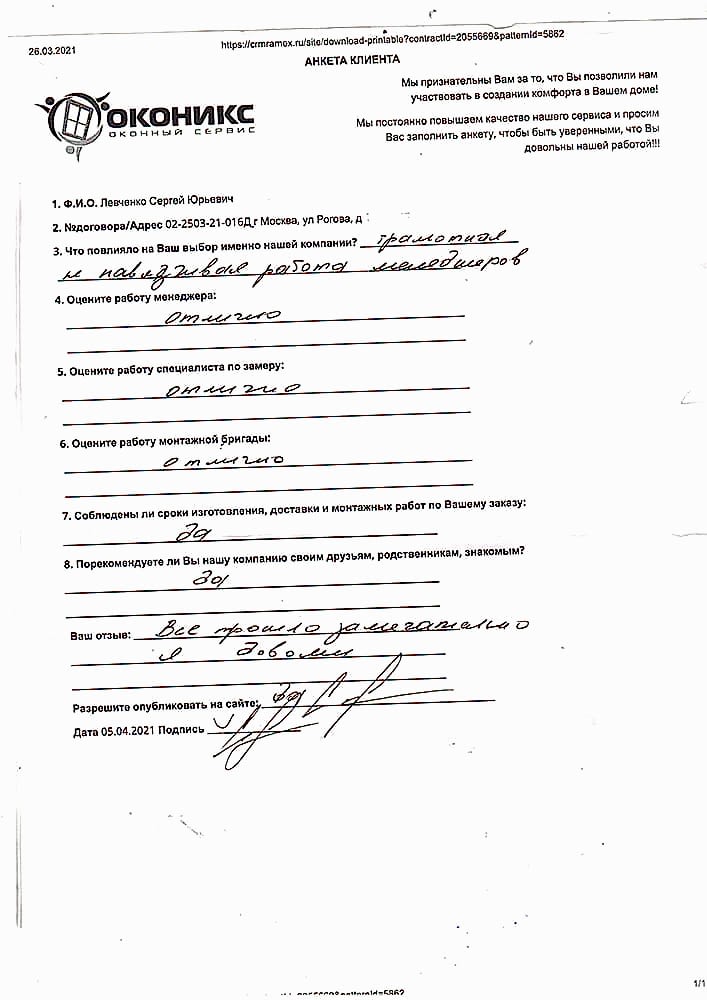 26.03.2021
https://crmramex.ru/site/download-printable?contractId=2055669&patternId=5862
АНКЕТА КЛИЕНТА
ОКОНИКС
ОКОННЫЙ СЕРВИС
Мы признательны Вам за то, что Вы позволили нам
участвовать в создании комфорта в Вашем доме!
Мы постоянно повышаем качество нашего сервиса и просим
Вас заполнить анкету, чтобы быть уверенными, что Вы
довольны нашей работой!!!
1. Ф.И.О. Левченко Сергей Юрьевич
2. №договора/Адрес 02-2503-21-016Д,г Москва, ул Рогова, д
3. Что повлияло на Ваш выбор именно нашей компании? грамотная
и работа менеджеров
4. Оцените работу менеджера:
отлично
5. Оцените работу специалиста по замеру:
отлично
6. Оцените работу монтажной бригады:
отлично
7. Соблюдены ли сроки изготовления, доставки и монтажных работ по Вашему заказу:
да
8. Порекомендуете ли Вы нашу компанию своим друзьям, родственникам, знакомым?
да
Ваш отзыв: Все прошло замечательно
я
Разрешите опубликовать на сайте: да
Дата 05.04.2021 Подпись
1/1